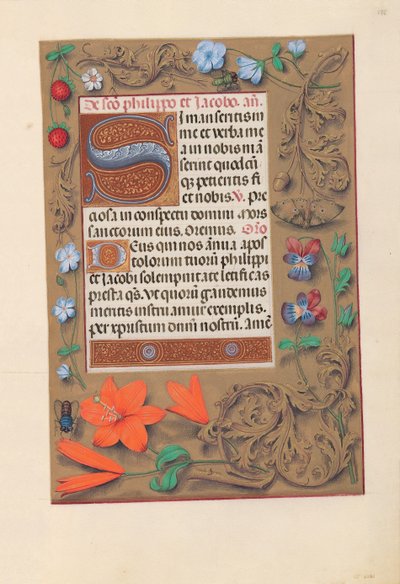 De sco philippo et Jacobo. an.
Si manseritis in
me et verba me
a in nobis mā
serint quodcū
q petieritis fi
et nobis V. Pre
ciosa in conspectu domini Mors
sanctorum eius. Oremus. Oro
Deus qui nos annua apos
tolorum tuorū philippi
et Jacobi solempnitate letificas
presta qs. Vt quorū gaudemus
meritis instruamur exemplis.
per xpristum dnm nostrū. Amē